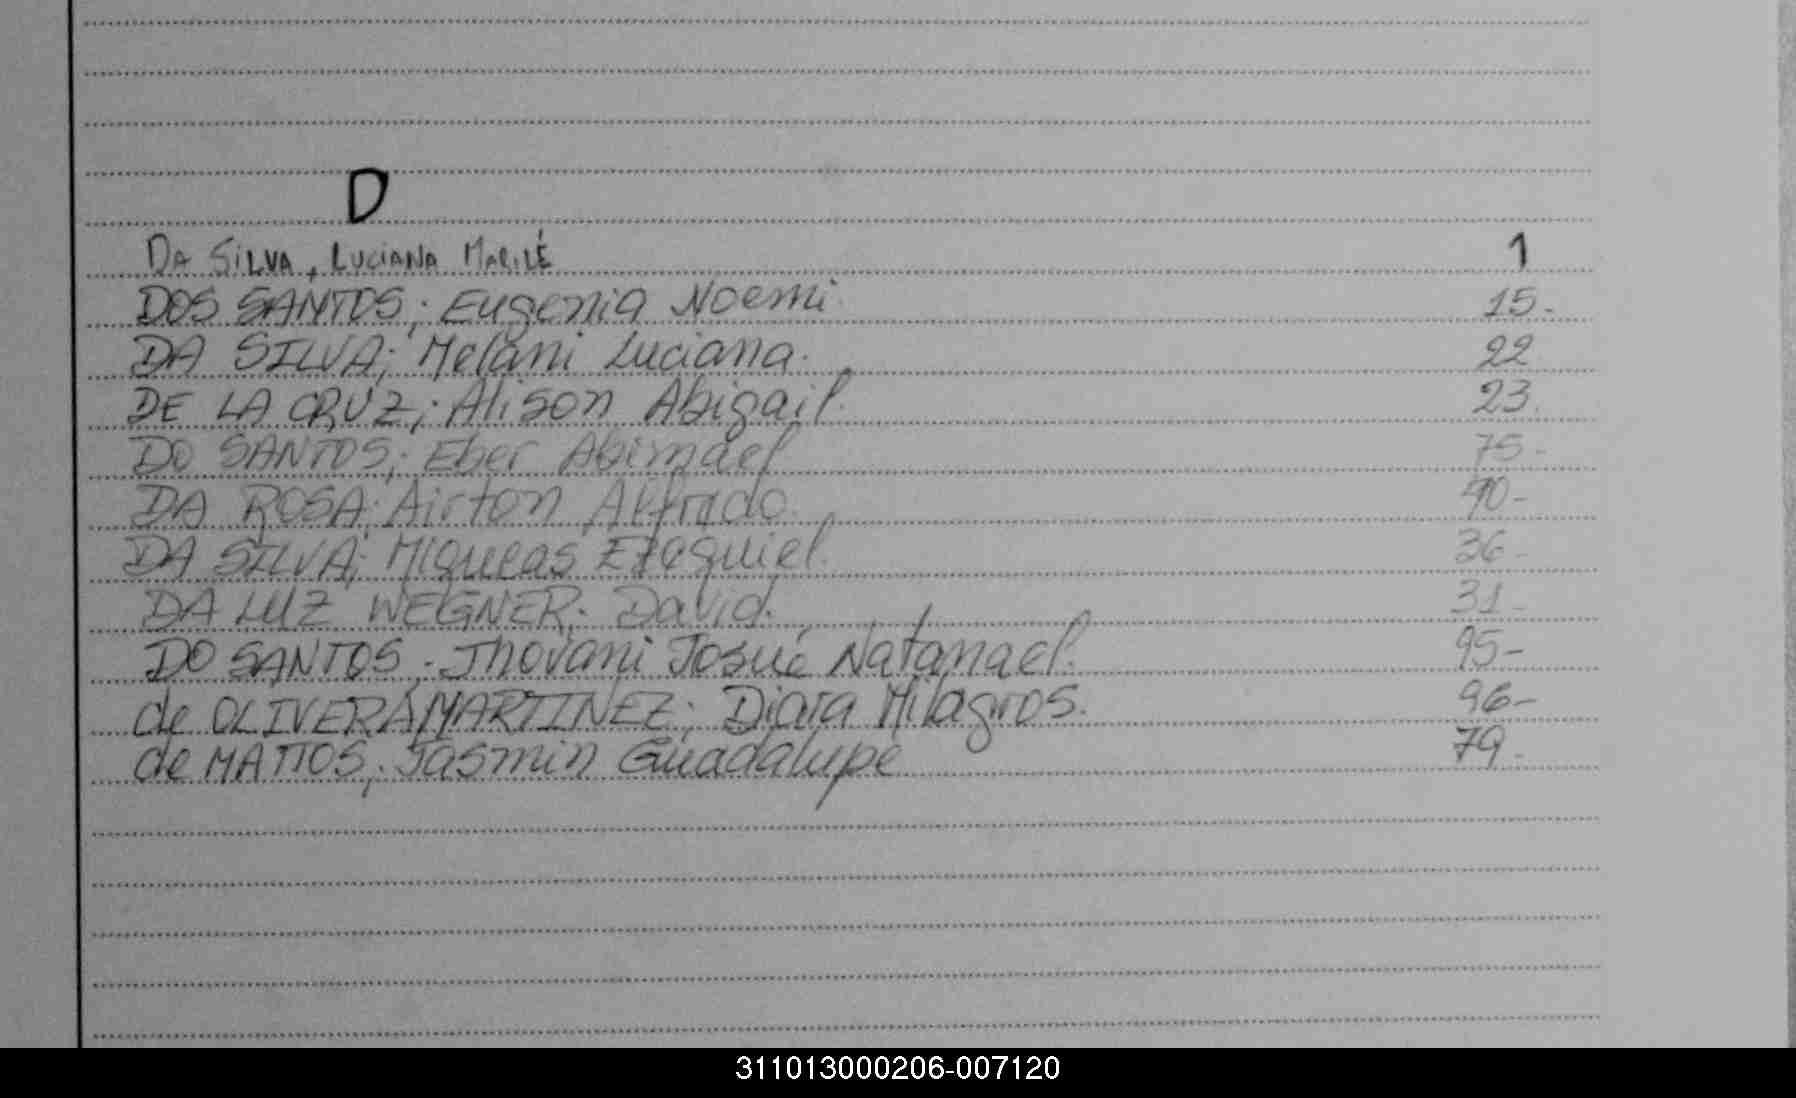 D
DA SILVA, LUCIANA MARILÉ 1
DOS SANTOS; Eugenia Noemi 15-
DA SILVA; Melani Luciana. 22
DE LA CRUZ; Alison Abigail. 23.
DO SANTOS; Eber Abimael 75-
DA ROSA; Airton Alfrido. 90-
DA SILVA; Miqueas Ezequiel. 36-
DA LUZ WEGNER; David. 31-
DO SANTOS; Jhovani Josué Natanael. 95-
de OLIVERA MARTINEZ; Diara Milagros. 96-
de MATTOS; Jasmin Guadalupe 79-
311013000206-007120